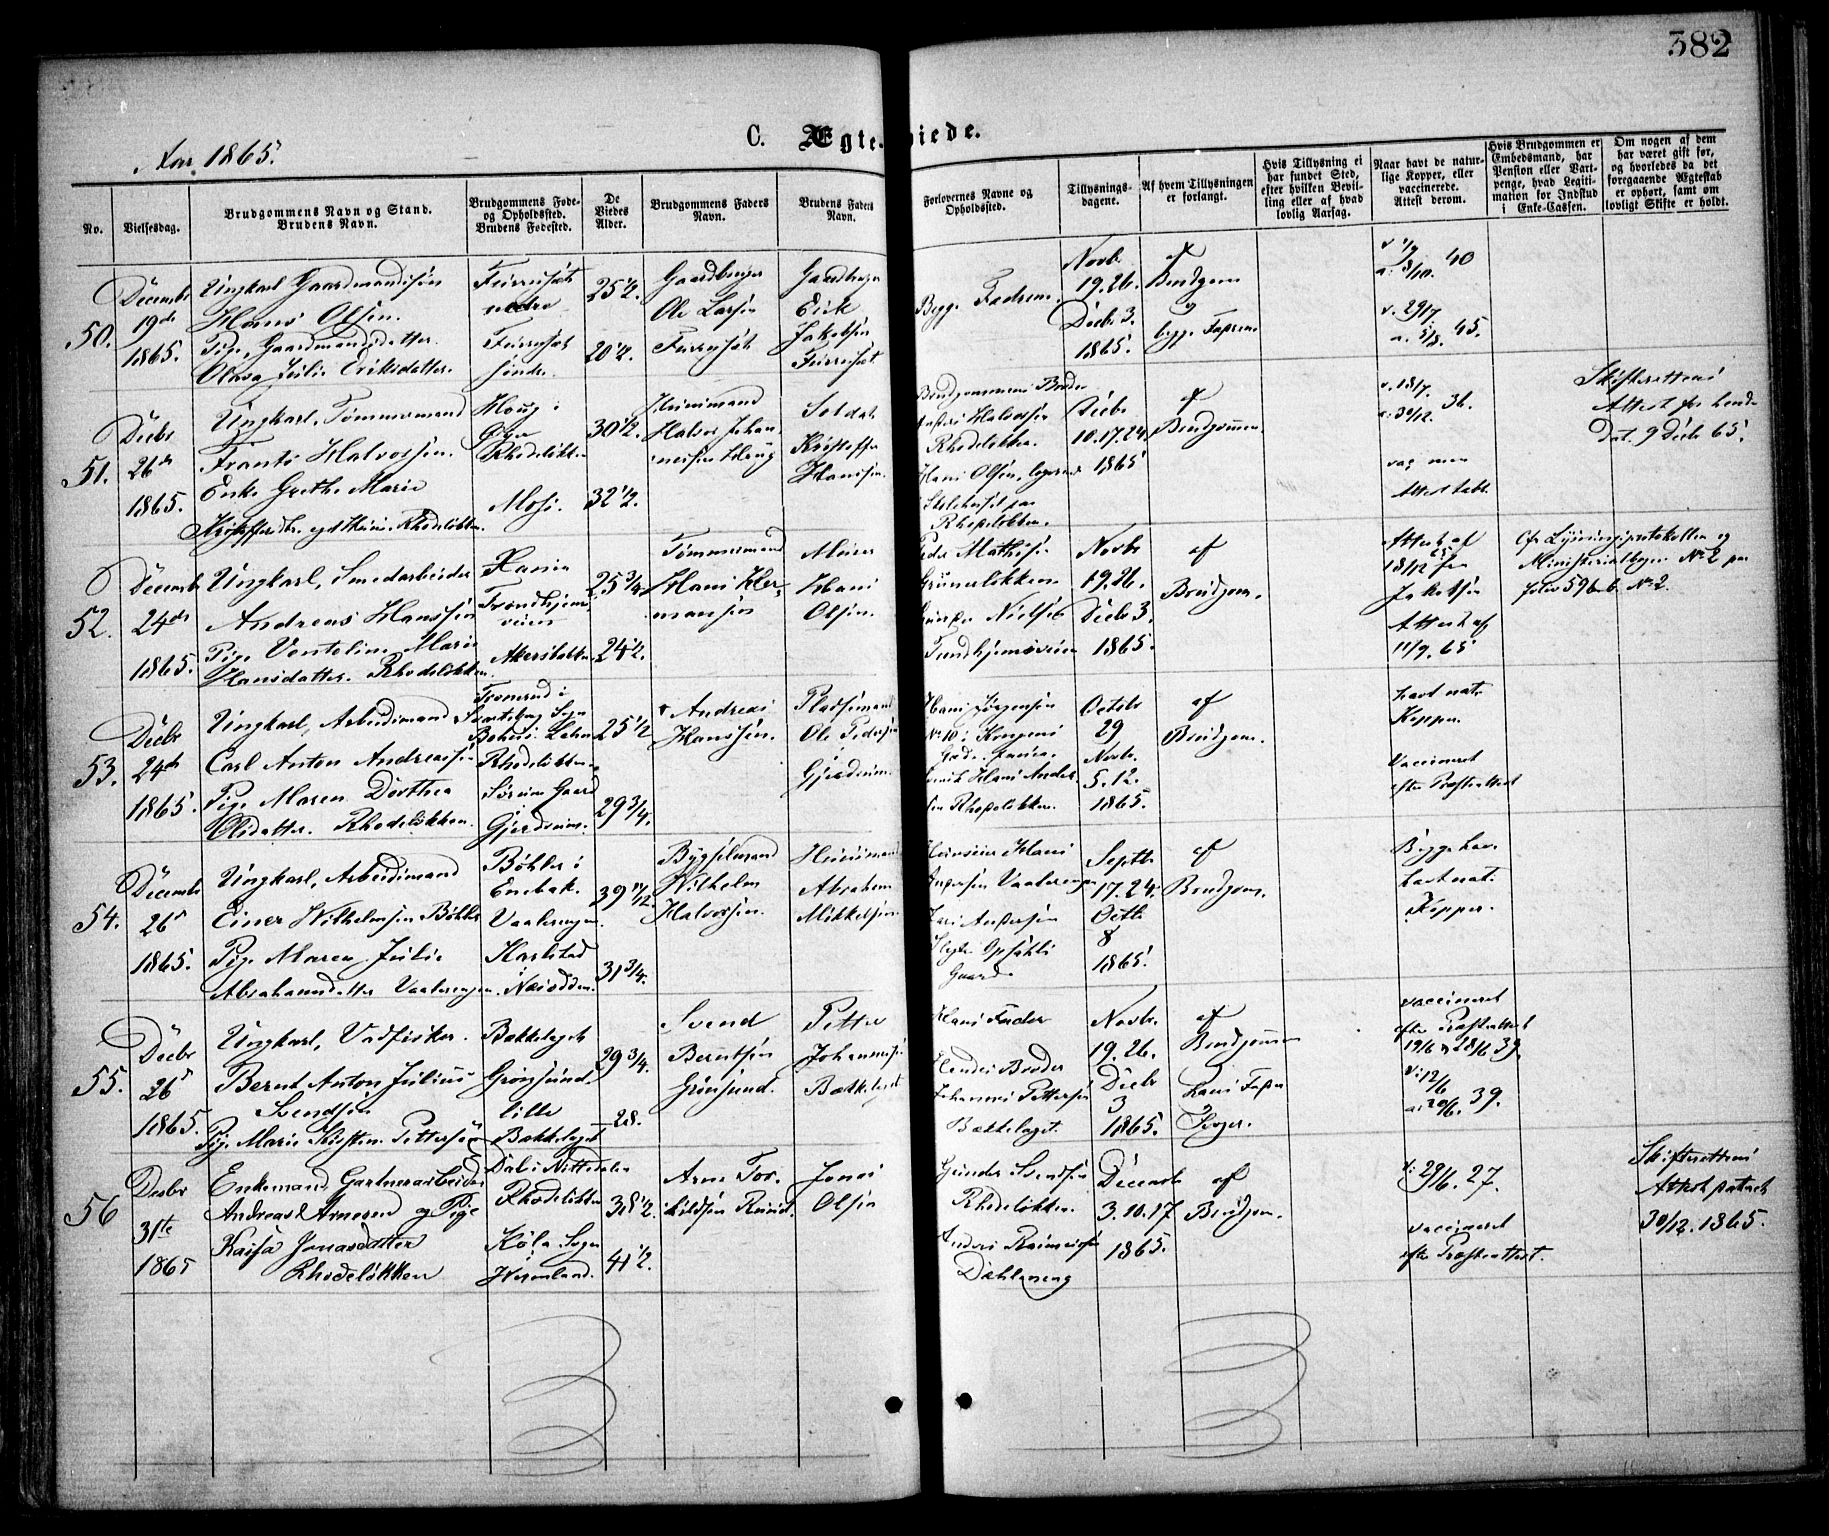 382
C. Ægteviede.
Aar 1865.
No.
Vielsesdag.
Brudgommens Navn og Stand.
Brudens Navn.
Brudgommens Føde-
og Opholdssted.
Brudens Fødested.
De
Viedes
Alder.
Brudgommens Faders
Navn.
Brudens Faders
Navn.
Forlovernes Navne og
Opholdssted.
Tillysnings-
dagene.
Af hvem Tillysningen
er forlangt.
Hvis Tillysning ei
har fundet Sted,
efter hvilken Bevil-
ling eller af hvad
lovlig Aarsag.
Naar havt de natur-
lige Kopper, eller
vaccinerede.
Attest derom.
Hvis Brudgommen er
Embedsmand, har
Pension eller Vart-
penge, hvad Legiti-
mation for Indskud
i Enke-Cassen.
Om nogen af dem
har været gift før,
og hvorledes da det
foregaaende Ægteskab
er ophørt, samt om
lovligt Skifte er holdt.
50.
Decembr
19de
1865.
Ungkarl Gaardmandssøn
Hans Olsen.
Pige, Gaardmandsdatter
Olava Julie Eriksdatter.
nedre
søndre
25 1/2.
20 1/2.
Gaardbruger
Ole Larsen
Gaardbruger
Erik
Jakobsen
Begge Fædrene.
Novbr
19. 26.
Decbr 3.
1865.
af
Brudgom
og
begge Fædrene
40
v. 29/7
a. 5/8. 45.
51.
Decbr
26de
1865.
Ungkarl, Tømmermand
Frants Halvorsen.
Enke Grethe Marie
Rhodeløkken.
Houg i
Rhodeløkken
Moss.
30 1/2.
32 1/2.
Huusmand
Halvor Johan-
nesen Houg
Soldat
Kristoffer
Hansen.
Brudgommens Broder
Halvorsen
Rhodeløkken.
Hans Olsen, logerende
Rhodeløkken.
Decbr
10. 17. 24.
1865
af
Brudgommen.
v. 18/7
a. 30/12. 36.
vac. men
Attest tabt.
Skifterettens
Attest for hende
dat. 9 Decbr 65.
52.
Decembr
24de
1865.
Ungkarl, Smedarbeider
Andreas Hanssen
Pige Venteline Marie
Hansdatter. Rhodeløkken.
Trondhjems-
veien
25 3/4
24 1/2.
Tømmermand
Hans Her-
mansen
Murer
Hans
Olsen.
Peder Mathisen
Grünerløkken
Nielsen
Trondhjemsveien
Novbr
19. 26.
Decbr 3.
1865.
af
Brudgom.
Attest af
18/12
Jakobsen
Attest af
11/9. 65
Cfr Lysningsprotokollen og
Ministerialbogen No 2 pag
folio 596 b No 2.
53.
Decbr
24de
1865.
Ungkarl, Arbeidsmand
Carl Anton Andreassen
Pige Maren Dorthea
Olsdatter. Rhodeløkken.
Rhodeløkken.
Gjerdrum.
25 1/2
29 3/4.
Andreas
Hanssen.
Pladsmand
Ole Pedersen
Gjerdrum.
Hans Jørgensen
No 10 i Kongens
Gade
Hans Anders-
sen Rhodeløkken.
Octobr
29
Novbr.
5. 12.
1865.
af
Brudgom.
havt nat.
Kopper.
Vaccineret
efter Præsteattest
54.
Decembr
26de
1865.
Ungkarl, Arbeidsmand
Einer Wilhelmsen Bøhler
Pige Maren Julie
Abrahamsdatter Vaalerengen.
Bøhler i
Enebak.
Vaalerengen.
Karlstad
Næsodden.
39 11/12.
31 3/4.
Bygselmand
Wilhelm
Halvorsen.
Huusmand
Abraham
Mikkelsen
Hans
Andersen Vaalerengen
Andersen
Opsahl
Gaard
Septbr
17. 24.
Octbr
8
1865.
af
Brudgom.
Begge have
havt nat.
Kopper.
55.
Decbr
26de
1865.
Ungkarl, Vadfisker.
Bernt Anton Julius
Svendsen
Pige Marie Kirsten Pettersen
Bækkelaget
Grønsund.
lille
Bækkelaget
29 3/4.
28.
Svend
Berntsen
Grønsund.
Petter
Johannesen
Bækkelaget
Hans Fader
Hendes Broder
Johannes Pettersen
Bækkelaget.
Novbr.
19. 26.
Decbr
3
1865.
af
Brudgommen
hans Fader
og
vaccineret
efter Præsteattest
19/6 28/6 39
v. 12/6
a. 20/6. 39.
56
Desbr
31te
1865
Enkemand Gartnerarbeider
Andreas Arnesen og Pige
Kaisa Jonasdatter
Rhodeløkken
Dal i Nittedalen
Rhodeløkken
Køla Sogn
Wermland.
38 1/2.
41 1/2.
Arne Tor-
kildsen
Jonas
Olsen
Gunder Svendsen
Rhodeløkken.
Anders
Dæhleneng
Decembr
3. 10. 17
1865.
af
Brudgom.
v: 29/6. 27.
vaccineret
efter Præsteattest.
Skifterettens
Attest dateret
30/12. 1865.